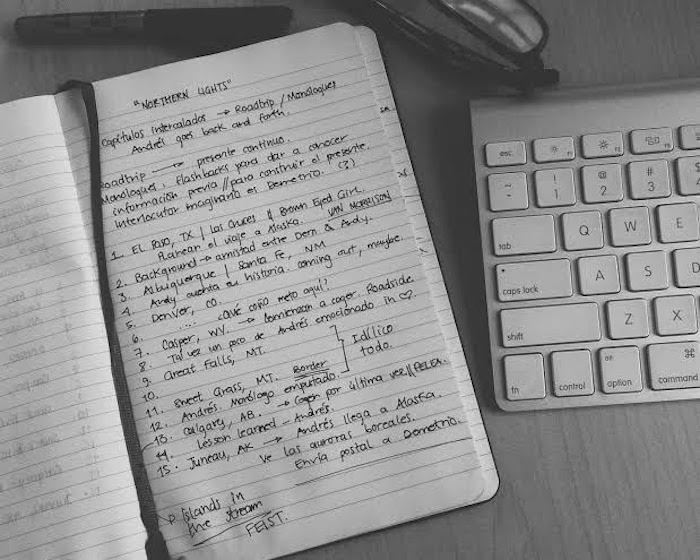 "NORTHERN LIGHTS"
Capítulos intercalados → Roadtrip / Monólogues
Andrés goes back and forth.
Roadtrip → presente continuo.
Monólogues, flashbacks para dar a conocer
información previa // para construir el presente.
Interlocutor imaginario es Demetrio. (?)
1. EL PASO, TX | Las Cruces || Brown Eyed Girl.
Planear el viaje a Alaska. VAN MORRISON
2. Background → amistad entre Dem & Andy.
3. Albuquerque | Santa Fe, NM
4. Andy cuenta su historia. coming out, maybe.
5. Denver, CO.
6. ... ¿Qué coño meto aquí?
7. Casper, WY. → Comienzan a coger. Roadside
8. Tal vez un poco de Andrés emocionado. ih ♡.
9. Great Falls, MT.
10.
Idílico
todo.
11. Sweet Grass, MT. Border
12. Andrés. Monólogo emputado.
13. Calgary, AB. → Cogen por última vez // PELEA.
14. Lesson learned - Andrés.
15. Juneau, AK → Andrés llega a Alaska.
Ve las auroras boreales.
Envía postal a Demetrio.
Islands in
the stream
FEIST.
esc
F1
F2
F3
~
!
1
@
2
#
3
$
tab
Q
W
E
caps lock
A
S
D
shift
Z
X
fn
control
alt
option
⌘
command